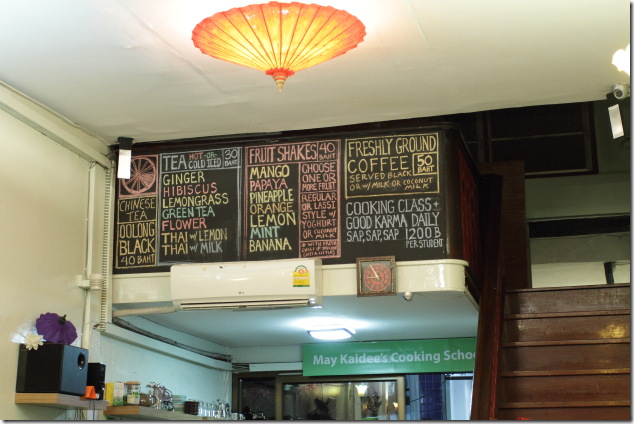 CHINESE
TEA
OOLONG
BLACK
40 BAHT
TEA HOT-OR-
COLD ICED
30
BAHT
GINGER
HIBISCUS
LEMONGRASS
GREEN TEA
FLOWER
THAI W/ LEMON
THAI W/ MILK
FRUIT SHAKES
40
BAHT
MANGO
PAPAYA
PINEAPPLE
ORANGE
LEMON
MINT
BANANA
CHOOSE
ONE OR
MORE FRUIT
REGULAR
OR LASSI
STYLE W/
YOGHURT
OR COCONUT
MILK
FRESHLY GROUND
COFFEE
50
BAHT
SERVED BLACK
OR W/ MILK OR COCONUT
MILK
COOKING CLASS +
GOOD KARMA DAILY
SAP, SAP, SAP 1200 B
PER STUDENT
May Kaidee's Cooking Schoo